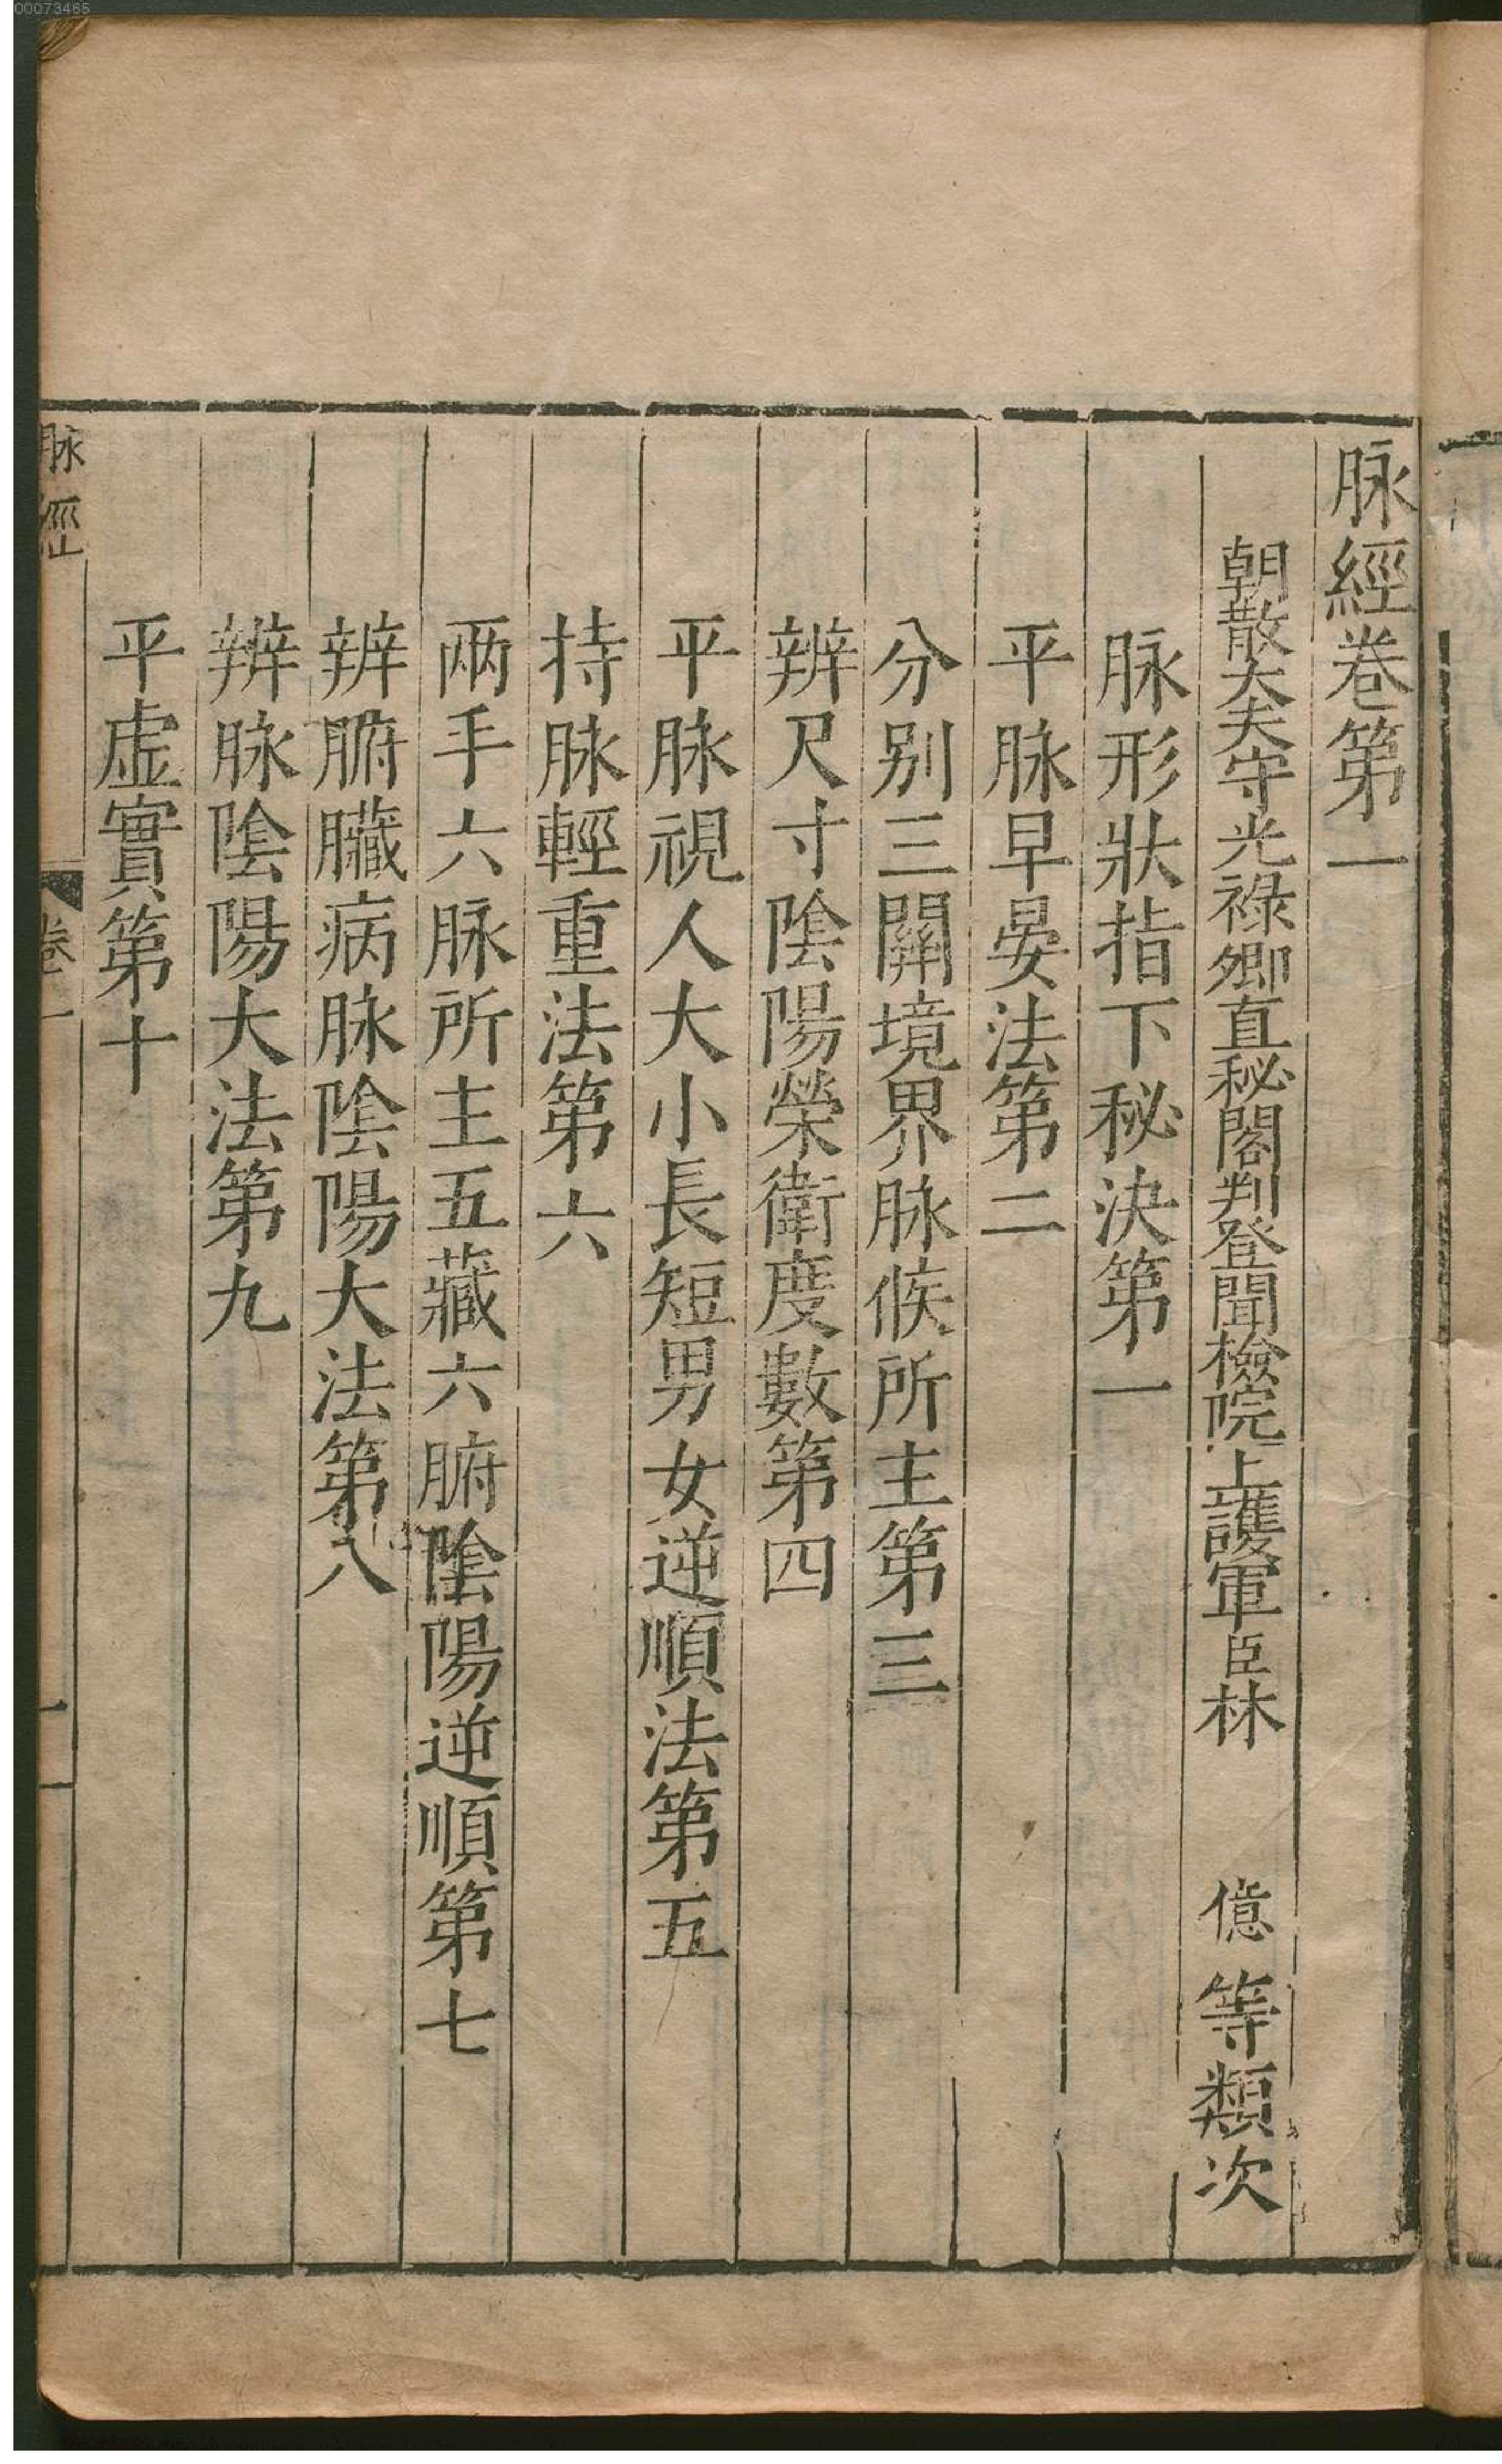 00073465
脉經卷第一
朝散大夫守光祿卿直秘閣判登聞檢院上護軍臣林億等類次
脉形狀指下秘決第一
平脉早晏法第二
分别三關境界脉候所主第三
辨尺寸陰陽榮衛度數第四
平脉視人大小長短男女逆順法第五
持脉輕重法第六
兩手六脉所主五藏六腑陰陽逆順第七
辨腑臟病脉陰陽大法第八
辨脉陰陽大法第九
平虛實第十
脉經
卷一
一